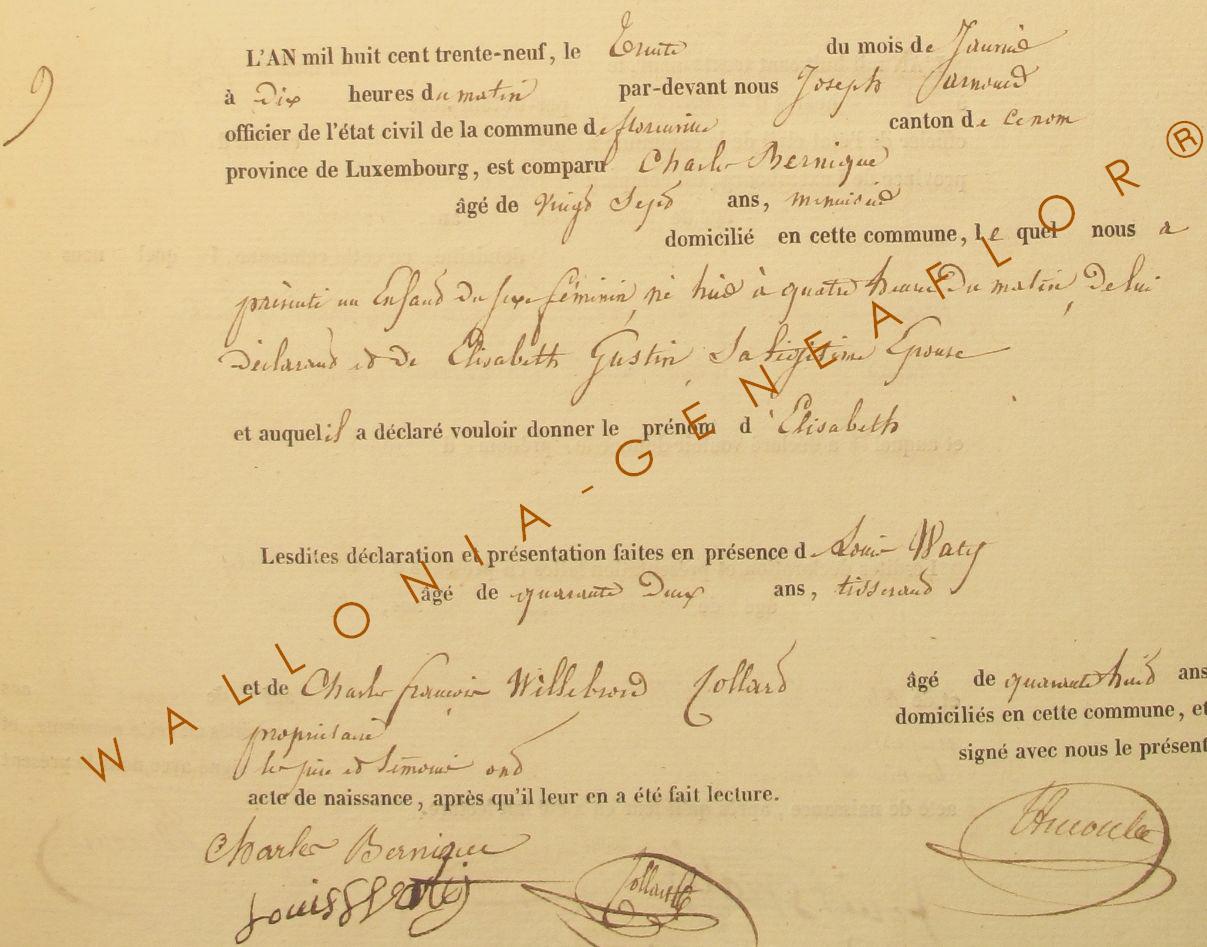 9
L'AN mil huit cent trente-neuf, le Trente du mois de Janvier
à Dix heures du matin par-devant nous Joseph
officier de l'état civil de la commune de florenville canton de
province de Luxembourg, est comparu Charles Bernique
âgé de vingt Sept ans, menuisier
domicilié en cette commune, le quel nous a
présenté un Enfant du sexe féminin, né hier à quatre heures Du matin, De lui
Déclarant et de Elisabeth Gustin, Sa légitime Epouse
et auquel il a déclaré vouloir donner le prénom d'Elisabeth
Lesdites déclaration et présentation faites en présence de Louis Waty
âgé de quarante Deux ans, tisserand
et de Charles françois Willebrord Collard âgé de quarante huit ans
propriétaire domiciliés en cette commune, et
les père et témoins ont signé avec nous le présent
acte de naissance, après qu'il leur en a été fait lecture.
Charles Bernique
Louis Waty Collard
WALLONIA-GENEAFLOR®